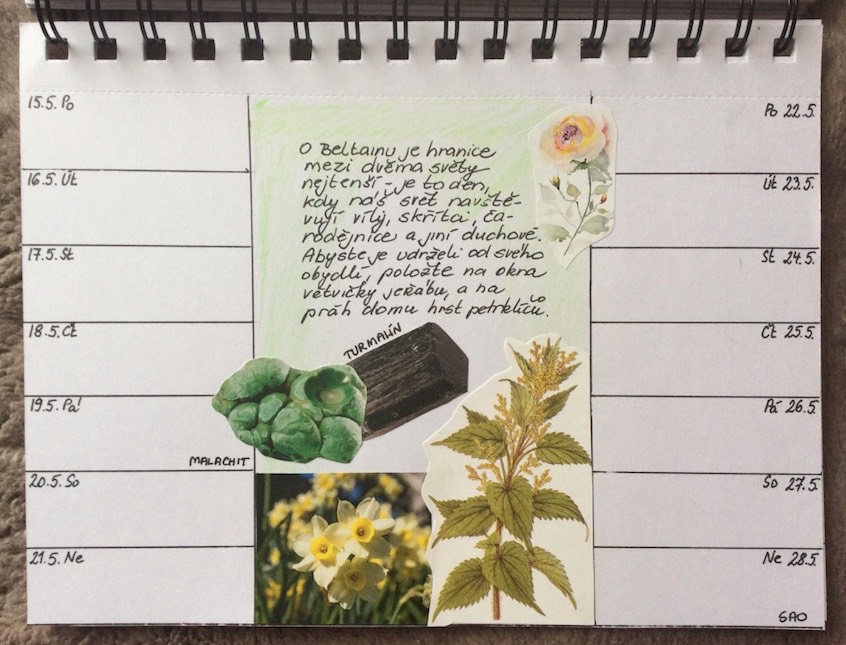 15.5. Po
16.5. Út
17.5. St
18.5. Čt
19.5. Pá
20.5. So
21.5. Ne
O Beltainu je hranice
mezi dvěma světy
nejtenší - je to den,
kdy náš svět navště-
vují víly, skřítci, ča-
rodějnice a jiní duchové.
Abyste je udrželi od svého
obydlí, položte na okna
větvičky jeřábu, a na
práh domu hrst petrklíčů.
TURMALÍN
MALACHIT
Po 22.5.
Út 23.5.
St 24.5.
Čt 25.5.
Pá 26.5.
So 27.5.
Ne 28.5.
SAO